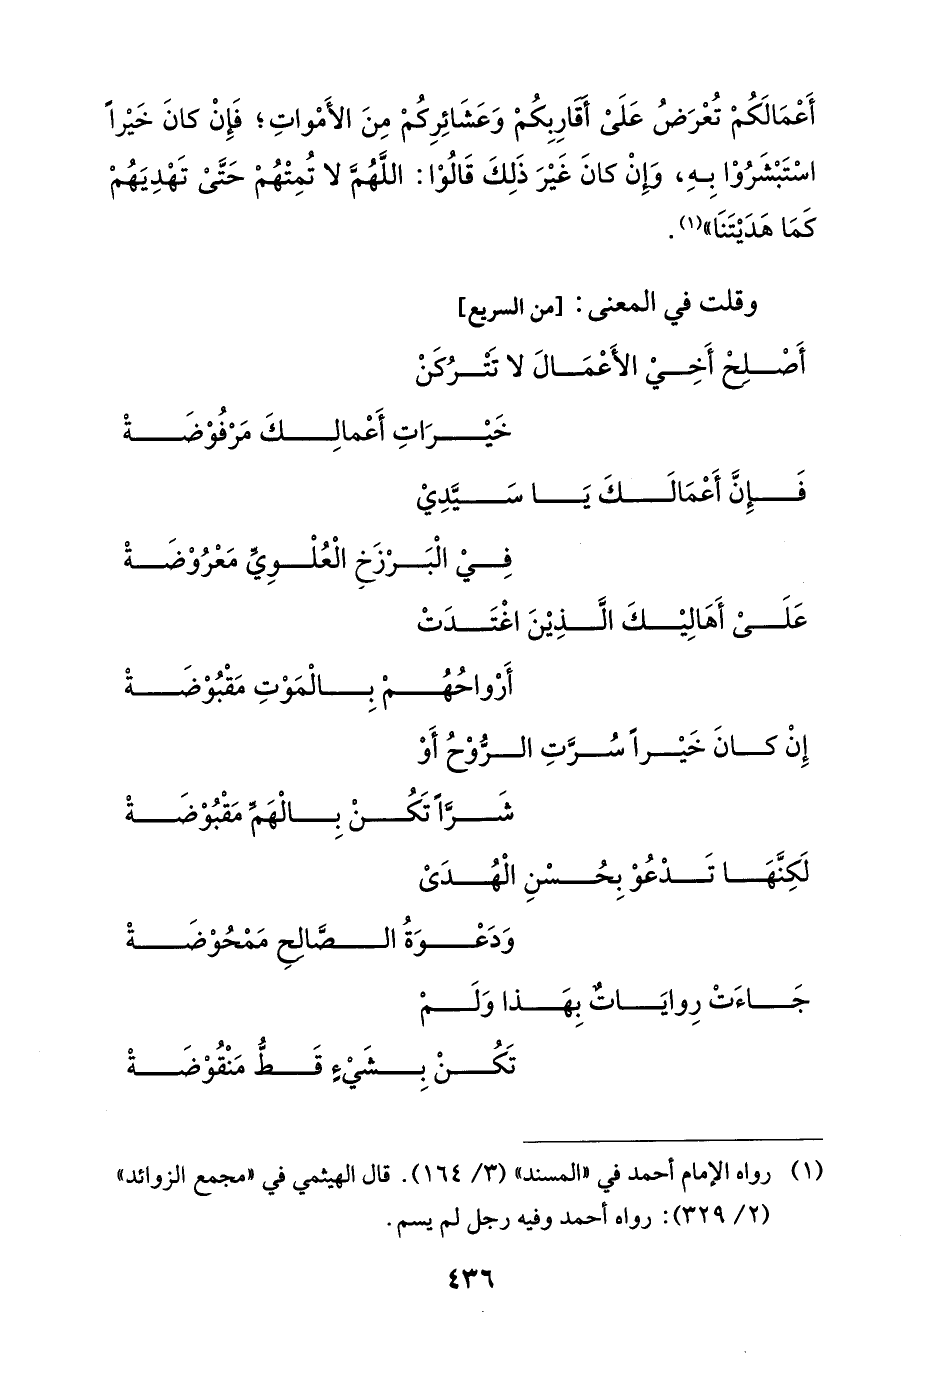 أَعْمَالَكُمْ تُعْرَضُ عَلَىْ أَقَارِبِكُمْ وَعَشَائِرِكُمْ مِنَ الأَمْوَاتِ؛ فَإِنْ كانَ خَيْراً
اسْتَبْشَرُوْا بِهِ، وَإِنْ كانَ غَيْرَ ذَلِكَ قَالُوْا: اللَّهُمَّ لا تُمِتْهُمْ حَتَّىْ تَهْدِيَهُمْ
كَمَا هَدَيْتَنَا»(١).
وقلت في المعنى: [من السريع]
أَصْلِحْ أَخِيْ الأَعْمَالَ لا تَتْرُكَنْ
خَيْرَاتِ أَعْمالِكَ مَرْفُوْضَةْ
فَإِنَّ أَعْمَالَكَ يَا سَيِّدِيْ
فِيْ الْبَرْزَخِ الْعُلْوِيِّ مَعْرُوْضَةْ
عَلَىْ أَهَالِيْكَ الَّذِيْنَ اغْتَدَتْ
أَرْواحُهُمْ بِالْمَوْتِ مَقْبُوْضَةْ
إِنْ كانَ خَيْراً سُرَّتِ الرُّوْحُ أَوْ
شَرَّاً تَكُنْ بِالْهَمِّ مَقْبُوْضَةْ
لَكِنَّهَا تَدْعُوْ بِحُسْنِ الْهُدَىْ
وَدَعْوَةُ الصَّالِحِ مَمْحُوْضَةْ
جَاءَتْ رِوايَاتٌ بِهَذا وَلَمْ
تَكُنْ بِشَيْءٍ قَطُّ مَنْقُوْضَةْ
(١) رواه الإمام أحمد في «المسند» (٣/ ١٦٤). قال الهيثمي في «مجمع الزوائد»
(٢/ ٣٢٩): رواه أحمد وفيه رجل لم يسم.
٤٣٦